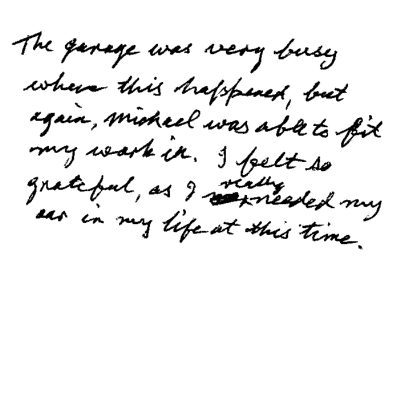 The garage was very busy
when this happened, but
again, Michael was able to fit
my work in. I felt so
grateful, as I really needed my
car in my life at this time.